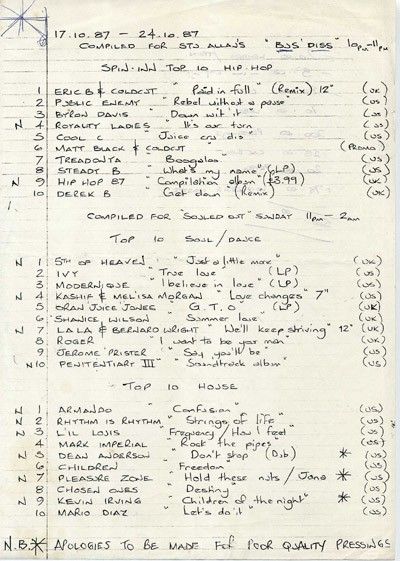 17.10.87 – 24.10.87
COMPILED FOR STU ALLAN'S "BUS' DISS" 10pm-11pm
SPIN-INN TOP 10 HIP HOP
1 ERIC B & COLDCUT "Paid in full" (Remix) 12" (UK)
2 PUBLIC ENEMY "Rebel without a pause" (US)
3 BYRON DAVIS "Down wit it" (US)
N 4 ROYALTY LADIES "It's our turn" (US)
5 COOL C "Juice crew dis" (US)
6 MATT BLACK & COLDCUT (PROMO)
7 TREADONYA "Boogaloo" (US)
8 STEADY B "What's my name" (LP) (US)
N 9 HIP HOP 87 "Compilation album" (£3.99) (UK)
10 DEREK B "Get down" (Remix) (UK)
COMPILED FOR "SOULED OUT" SUNDAY 11pm - 2am
TOP 10 SOUL / DANCE
N 1 5TH OF HEAVEN "Just a little more" (UK)
2 IVY "True love" (LP) (US)
3 MODERNIQUE "I believe in love" (LP) (US)
N 4 KASHIF & MELISA MORGAN "Love changes" 7" (US)
5 ORAN JUICE JONES "G.T.O" (LP) (UK)
6 SHANICE WILSON "Summer love" (UK)
N 7 LA LA & BERNARD WRIGHT "We'll keep striving" 12" (UK)
8 ROGER "I want to be your man" (UK)
9 JEROME PRISTER "Say you'll be" (US)
N 10 PENITENTIARY III "Soundtrack album" (US)
TOP 10 HOUSE
N 1 ARMANDO "Confusion" (US)
N 2 RHYTHIM IS RHYTHIM "Strings of life" (US)
N 3 L'IL LOUIS "Frequency / How I feel" (US)
4 MARK IMPERIAL "Rock the pipes" (US)
N 5 DEAN ANDERSON "Don't stop (Dub) * (US)
6 CHILDREN "Freedom" (US)
N 7 PLEASURE ZONE "Hold these nuts / Jane * (US)
8 CHOSEN ONES "Destiny" (US)
N 9 KEVIN IRVING "Children of the night" * (US)
10 MARIO DIAZ "Let's do it" (US)
N.B. * APOLOGIES TO BE MADE FOR POOR QUALITY PRESSINGS